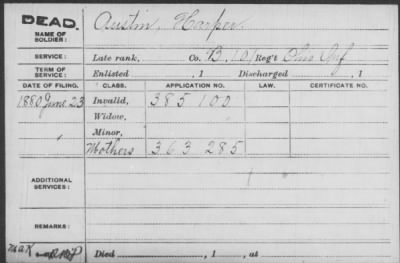 DEAD. Austin, Harper.
NAME OF SOLDIER:
SERVICE: Late rank, Co. B, 101 Reg't Ohio Inf
TERM OF SERVICE: Enlisted , 1 Discharged , 1
DATE OF FILING. CLASS. APPLICATION NO. LAW. CERTIFICATE NO.
1880 June 23 Invalid, 385100
Widow,
Minor,
Mothers 363 285
ADDITIONAL SERVICES:
REMARKS:
Died , 1 , at